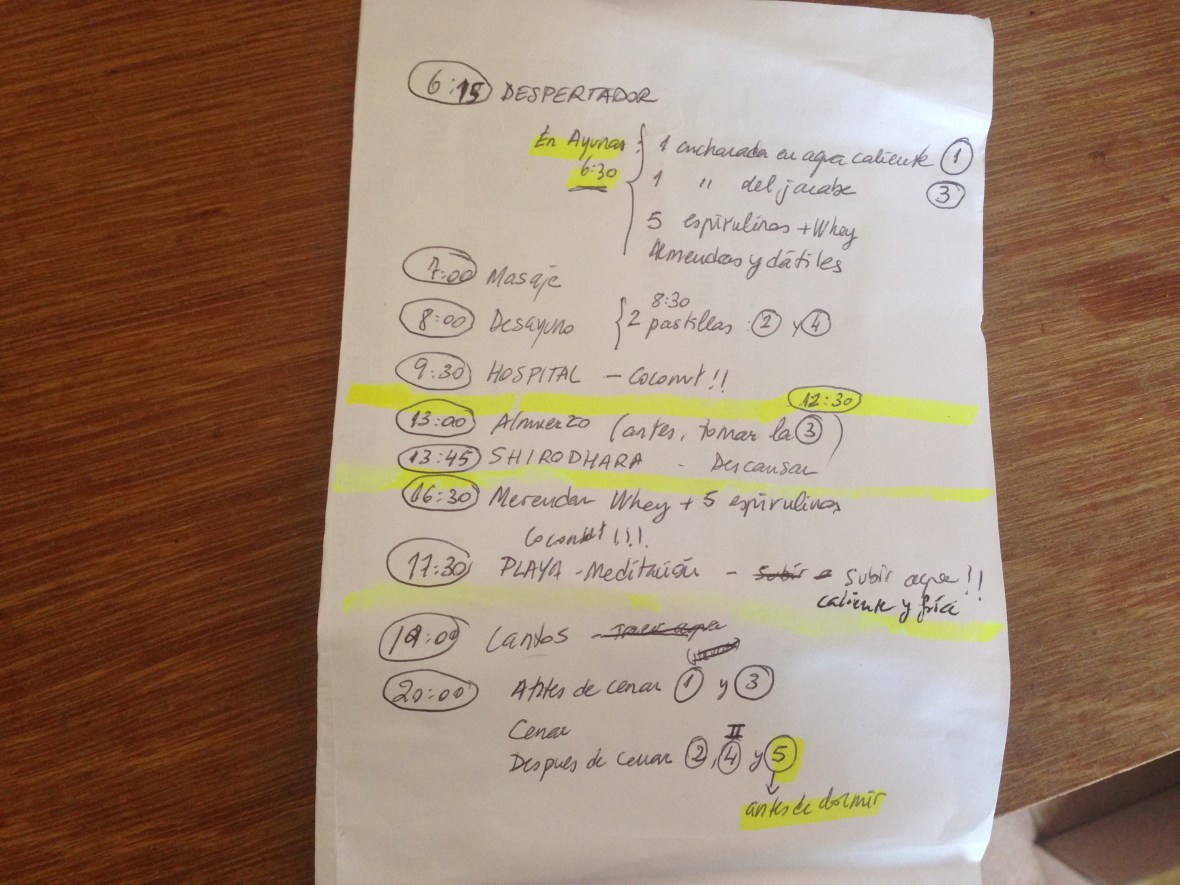 6:15 DESPERTADOR
En Ayunas : 1 cucharada en agua caliente 1
6:30 1 " del jarabe 3
5 espirulinas + Whey
Almendras y dátiles
7:00 Masaje
8:30
8:00 Desayuno 2 pastillas : 2 y 4
9:30 HOSPITAL - Coconut!!
12:30
13:00 Almuerzo (antes, tomar la 3)
13:45 SHIRODHARA - Descansar
16:30 Merendar Whey + 5 espirulinas
Coconut!!!
17:30 PLAYA - Meditación - subir agua!!
caliente y fría
19:00 Cantos -
20:00 Antes de cenar 1 y 3
Cenar
II
Despues de cenar 2, 4 y 5
antes de dormir